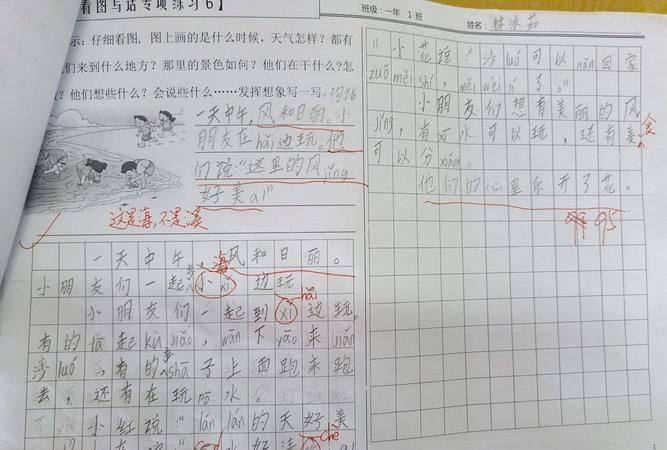 看图写话专项练习6】
示：仔细看图，图上画的是什么时候，天气怎样？都有
们来到什么地方？那里的景色如何？他们在干什么？怎
？他们想些什么？会说些什么……发挥想象写一写。
一天中午，风和日丽。小
朋友在hǎi边玩。他
们说："这里的风jǐng
好美a！"
这是海，不是溪
一天中午，海风和日丽。
小朋友们一起小xī边玩
hǎi
小朋友们一起到xī边玩。
有的kù jiǎo，wān下yāo来jiǎn
沙luó，有的shā子上面跑来跑
去，还有在玩pō水。
小红说："lán lán的天好美
chè
班级：一年1班
姓名：林冰茹
"小花说："沙luó可以jiǎn回家
zuò měi shí，měi wèi jí了。"
小朋友们想有美丽的风
jǐng，有水可以玩，还有美食
可以分xiǎng。
他们的心里乐开了花。
95
1